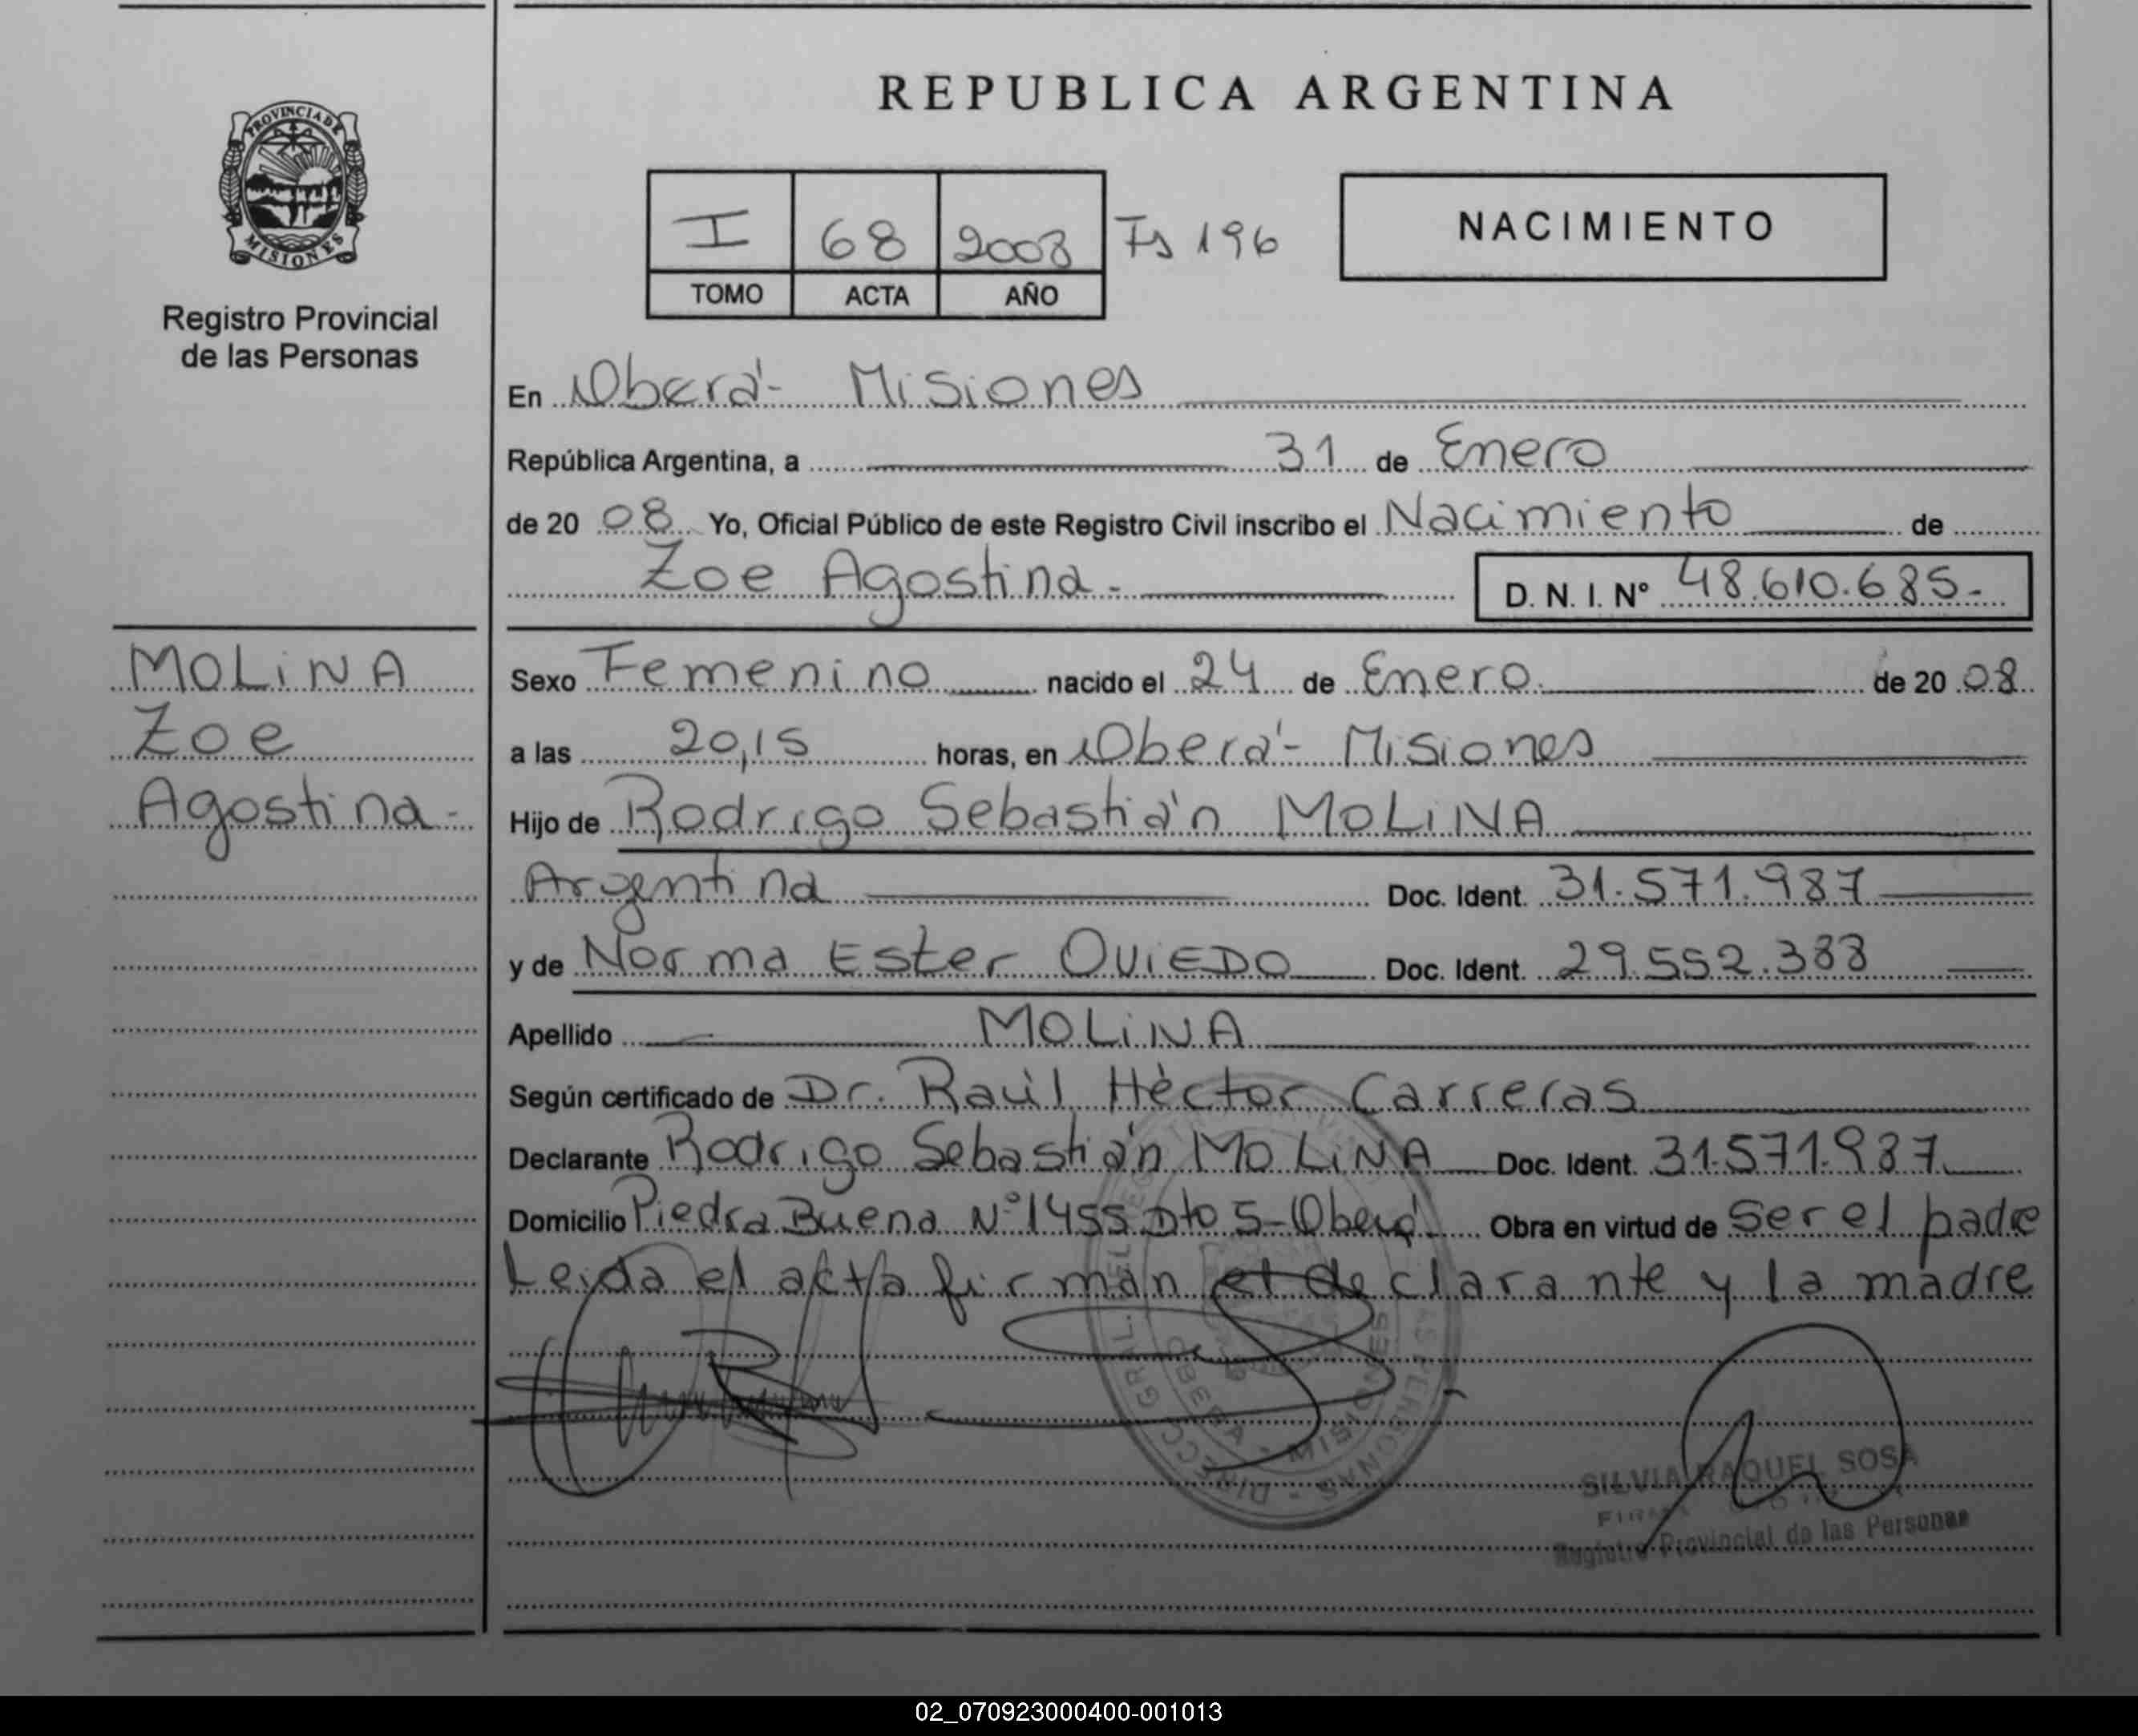 REPUBLICA ARGENTINA
PROVINCIA DE MISIONES
Registro Provincial
de las Personas
I 68 2008 Fs 196
TOMO ACTA AÑO
NACIMIENTO
En Oberá - Misiones
República Argentina, a 31 de Enero
de 20 08 Yo, Oficial Público de este Registro Civil inscribo el Nacimiento de
Zoe Agostina.- D. N. I. Nº 48.610.685.-
MOLiNA
Zoe
Agostina.-
Sexo Femenino nacido el 24 de Enero. de 20 08
a las 20,15 horas, en Oberá - Misiones
Hijo de Rodrigo Sebastián MOLiNA
Argentina Doc. Ident. 31.571.987
y de Norma Ester OViEDO Doc. Ident. 29.552.388
Apellido MOLiNA
Según certificado de Dr. Raúl Héctor Carreras
Declarante Rodrigo Sebastián MOLiNA Doc. Ident. 31.571.987
Domicilio Piedra Buena Nº 1455 Dto 5 - Oberá Obra en virtud de Ser el padre
Leida el acta firman el declarante y la madre
OBERA - MISIONES
SILVIA RAQUEL SOSA
Registro Provincial de las Personas
02_070923000400-001013